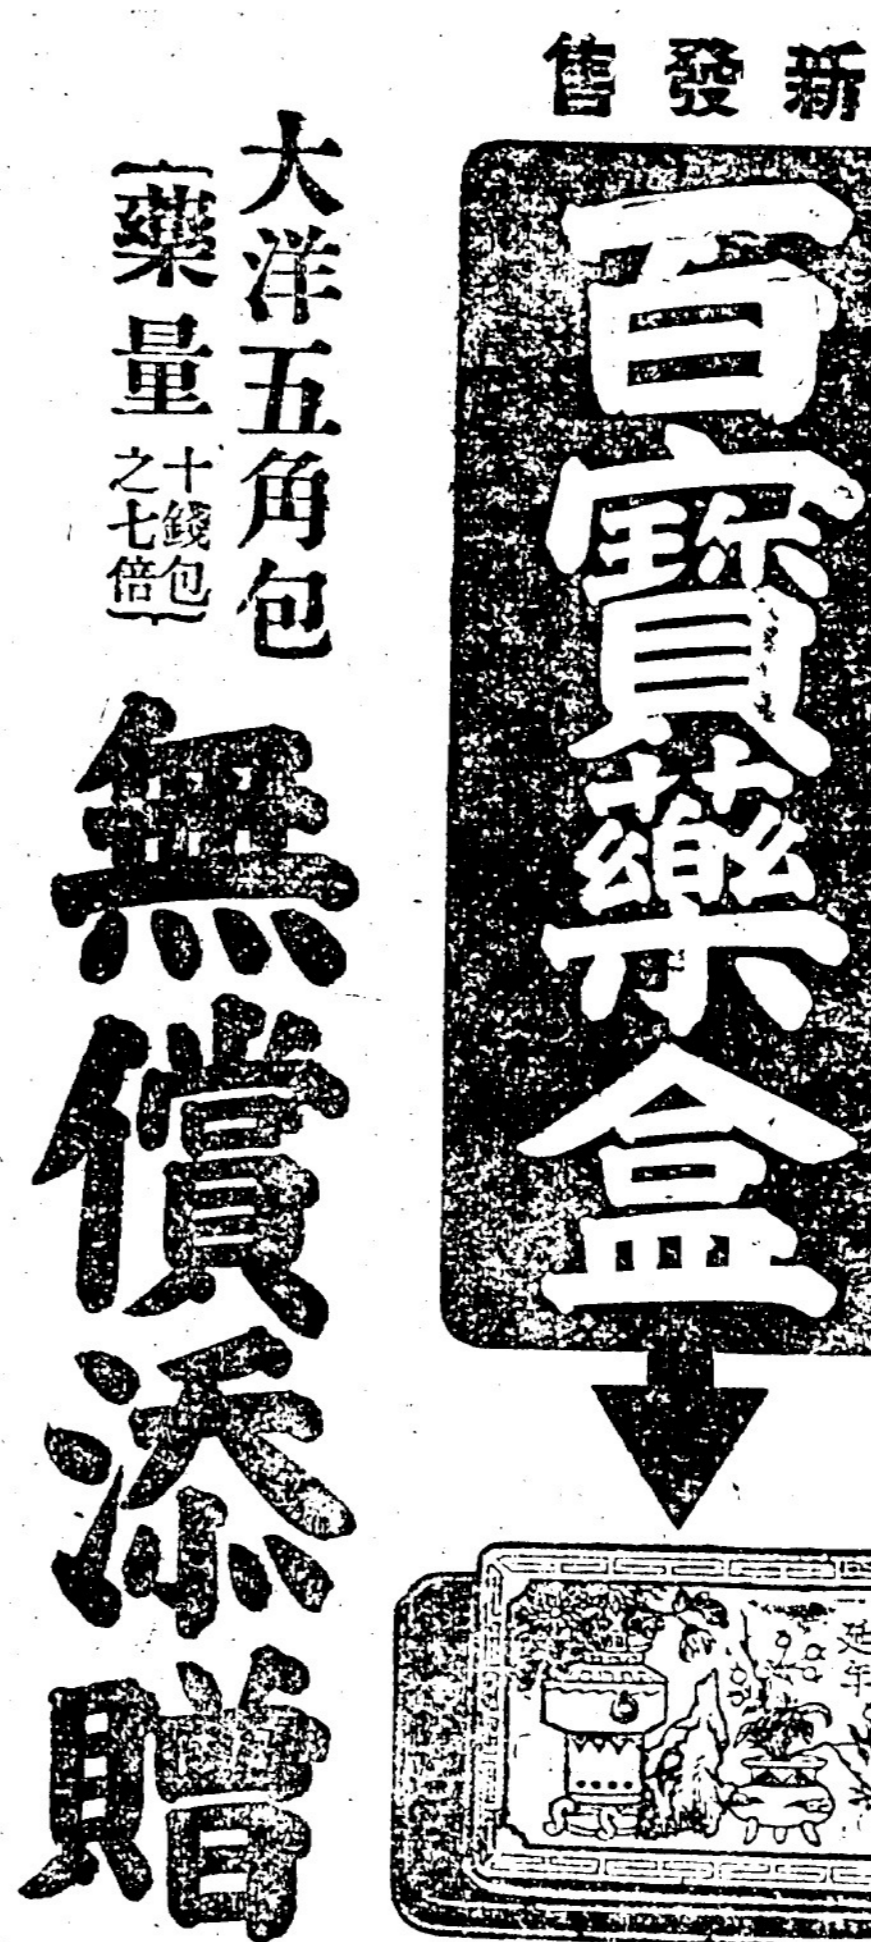 新發售
百寶藥盒
大洋五角包
(藥量十錢包之七倍)
無償添贈
延年